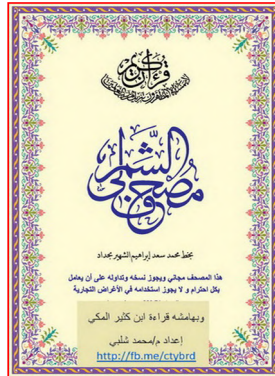 قرآن كريم
مصحف الشمرلي
بخط محمد سعد إبراهيم الشهير بحداد
هذا المصحف مجاني ويجوز نسخه وتداوله على أن يعامل
بكل احترام و لا يجوز استخدامه في الأغراض التجارية
وبهامشه قراءة ابن كثير المكي
إعداد م/محمد شلبي
http://fb.me/ctybrd